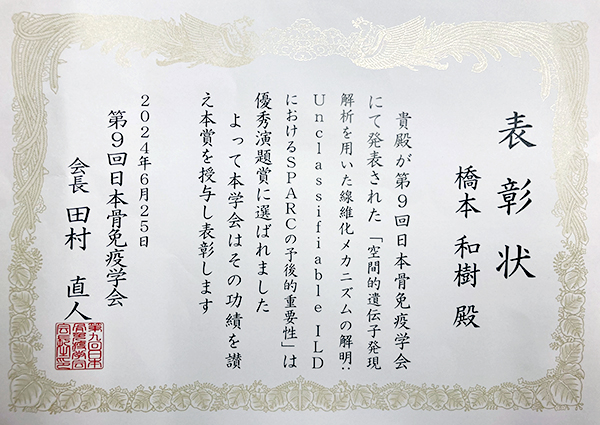 表彰状
橋本 和樹 殿
貴殿が第9回日本骨免疫学会
にて発表された「空間的遺伝子発現
解析を用いた線維化メカニズムの解明:
Unclassifiable ILD
におけるSPARCの予後的重要性」は
優秀演題賞に選ばれました
よって本学会はその功績を讃
え本賞を授与し表彰します
2024年6月25日
第9回日本骨免疫学会
会長 田村 直人